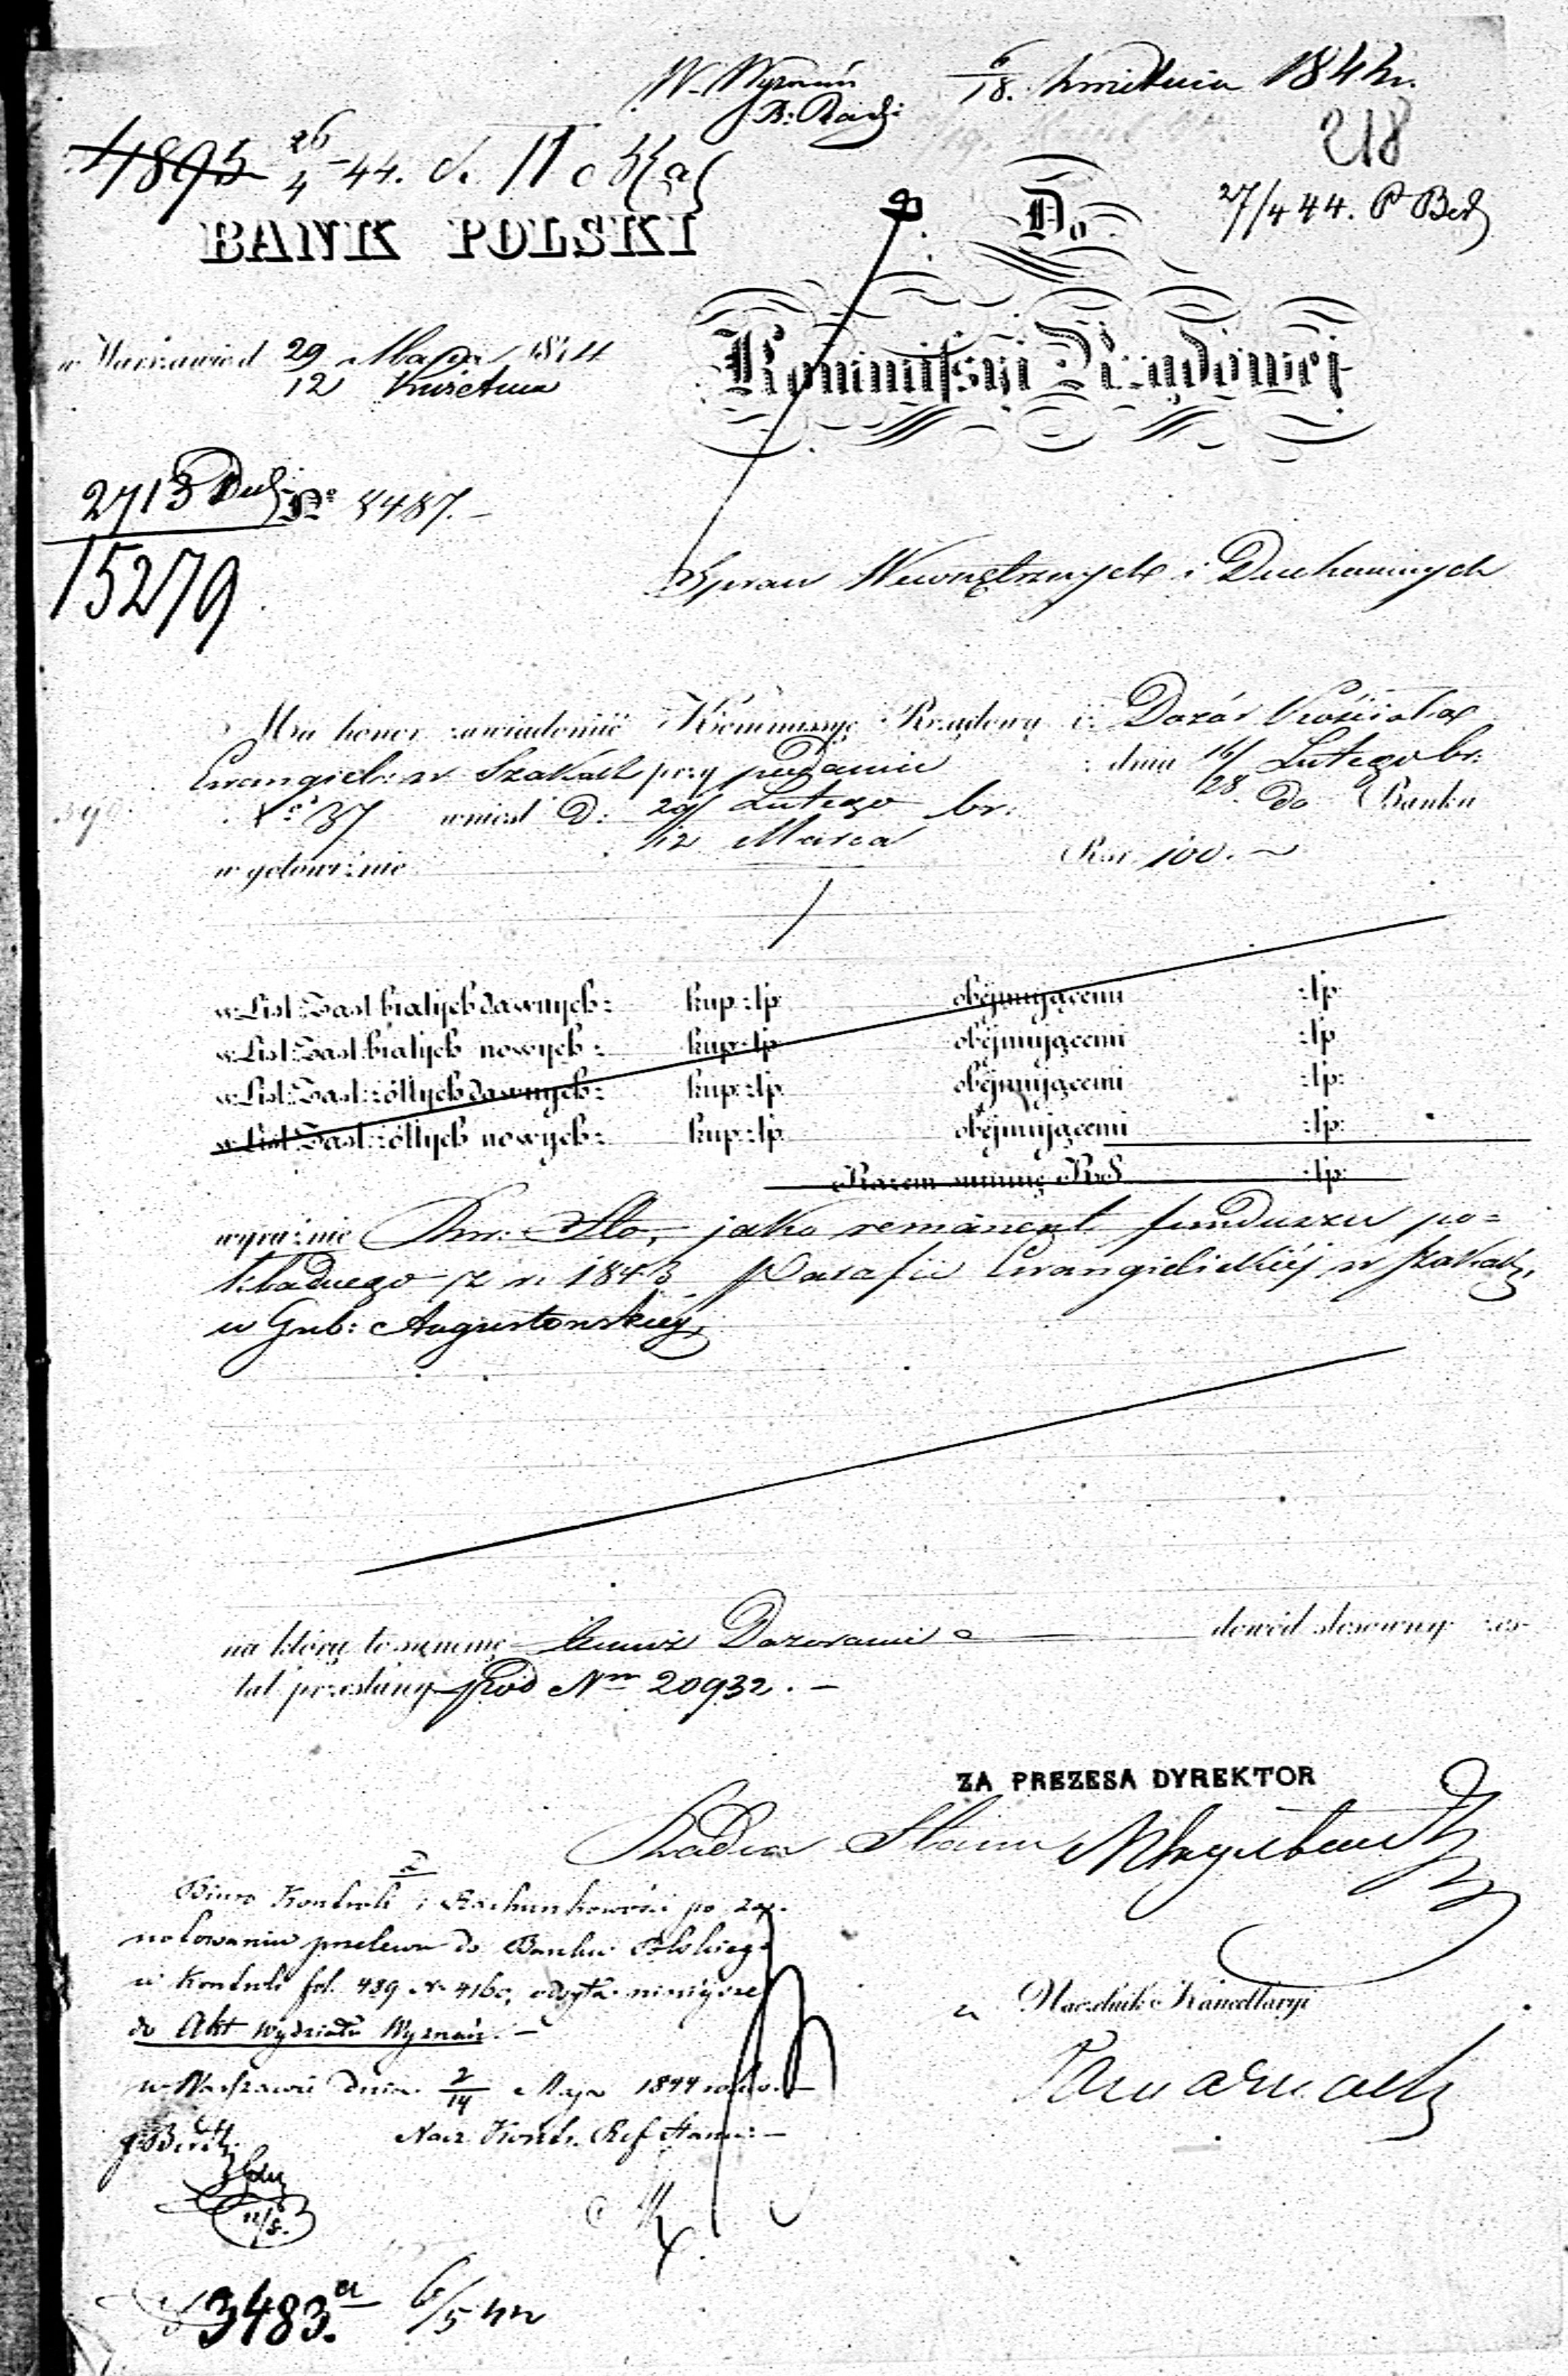 W. Wyznań 6/18. Kwietnia 1844 r.
B: Radz:
218
4895 26/4 44.
27/4 44. P Ber
BANK POLSKI
Do
Kommissyi Rządowej
w Warszawie d 29 Marca 1844
12 Kwietnia
2713 Duch
Nº 8487. –
15279
Spraw Wewnętrznych i Duchownych
Ma honor zawiadomić Kommissyę Rządową iż Dozór Kościoła
Ewangiel: w Szakach przy podaniu z dnia 16/28 Lutego br:
Nº 37 wniósł D: 29/12 Lutego br: do Banku
Marca
w gotowiźnie Rsr 100. ~
w List: Zast: białych dawnych: kup: złp obejmującemi złp:
w List: Zast: białych nowych: kup: złp obejmującemi złp
w List: Zast: żółtych dawnych: kup: złp. obejmującemi złp:
w List: Zast: żółtych nowych: kup: złp. obejmującemi złp:
Razem summę RoS złp:
wyraźnie Rsr: Sto, jako remanent funduszu po=
kładnego z r. 1843 Parafii Ewangielickiéj w Szakach,
w Gub: Augustowskiéj,
na którą to summę temuż Dozorowi dowód stosowny zos-
tał przesłany pod Nrm 20932. –
ZA PREZESA DYREKTOR
Radca Stanu
Biuro Kontroli i Rachunkowości po zap-
notowaniu przelewu do Banku Polskiego
w Kontroli fol. 489 Nr 4160, odsyła niniejsze
do Akt Wydziału Wyznań. –
w Warszawie dnia 2/14 Maja 1844 roku. –
Nacz Kontr. Ref Stanu –
za Naczelnik Kancellaryi
11/5.
3483. 6/5 44